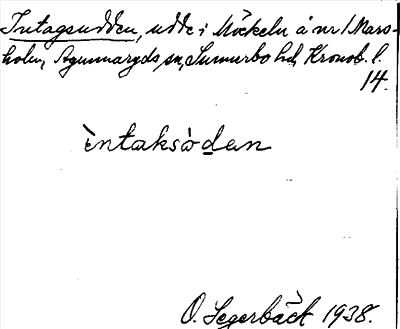 Intagsudden, udde i Möckeln å nr 1 Mars-
holm, Agunnaryds sn, Sunnerbo hd, Kronob. l.
14.
ìntaksòdan
O. Segerbäck 1938.